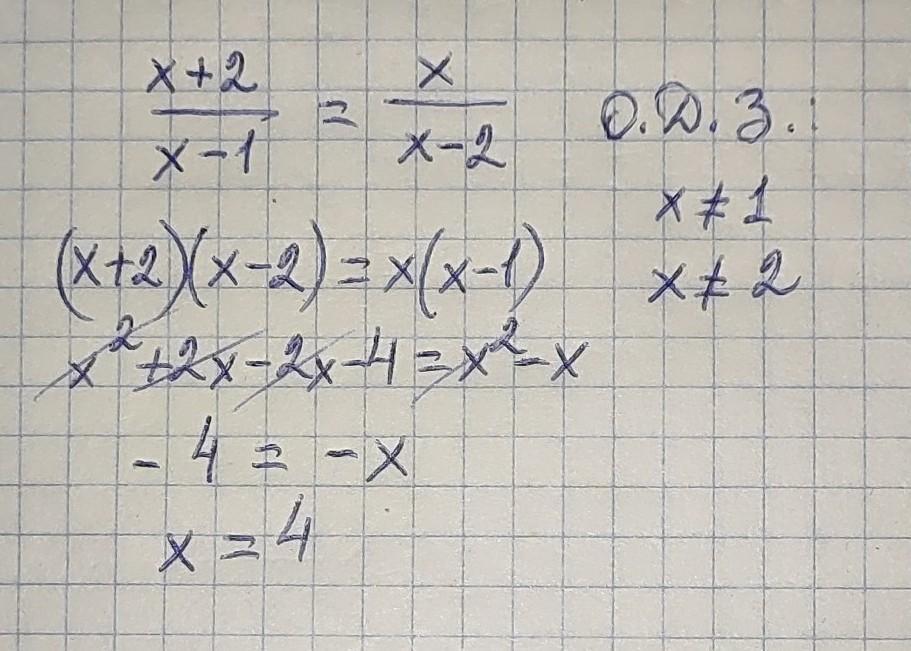 x+2/x-1 = x/x-2 О.Д.З.:
x ≠ 1
x ≠ 2
(x+2)(x-2)=x(x-1)
x²+2x-2x-4=x²-x
-4=-x
x=4